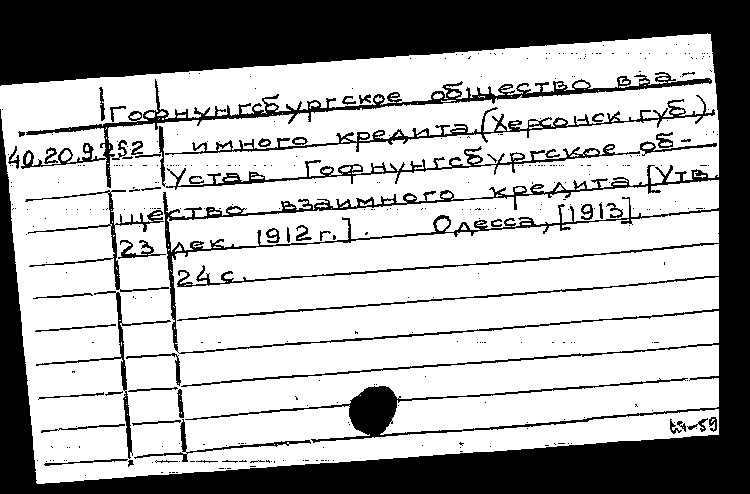 Гофнунгсбургское общество вза-
40.20.9.252 имного кредита.(Херсонск.губ.).
Устав Гофнунгсбургское об-
щество взаимного кредита.[Утв.
23 дек. 1912 г.]. Одесса, [1913].
24 с.